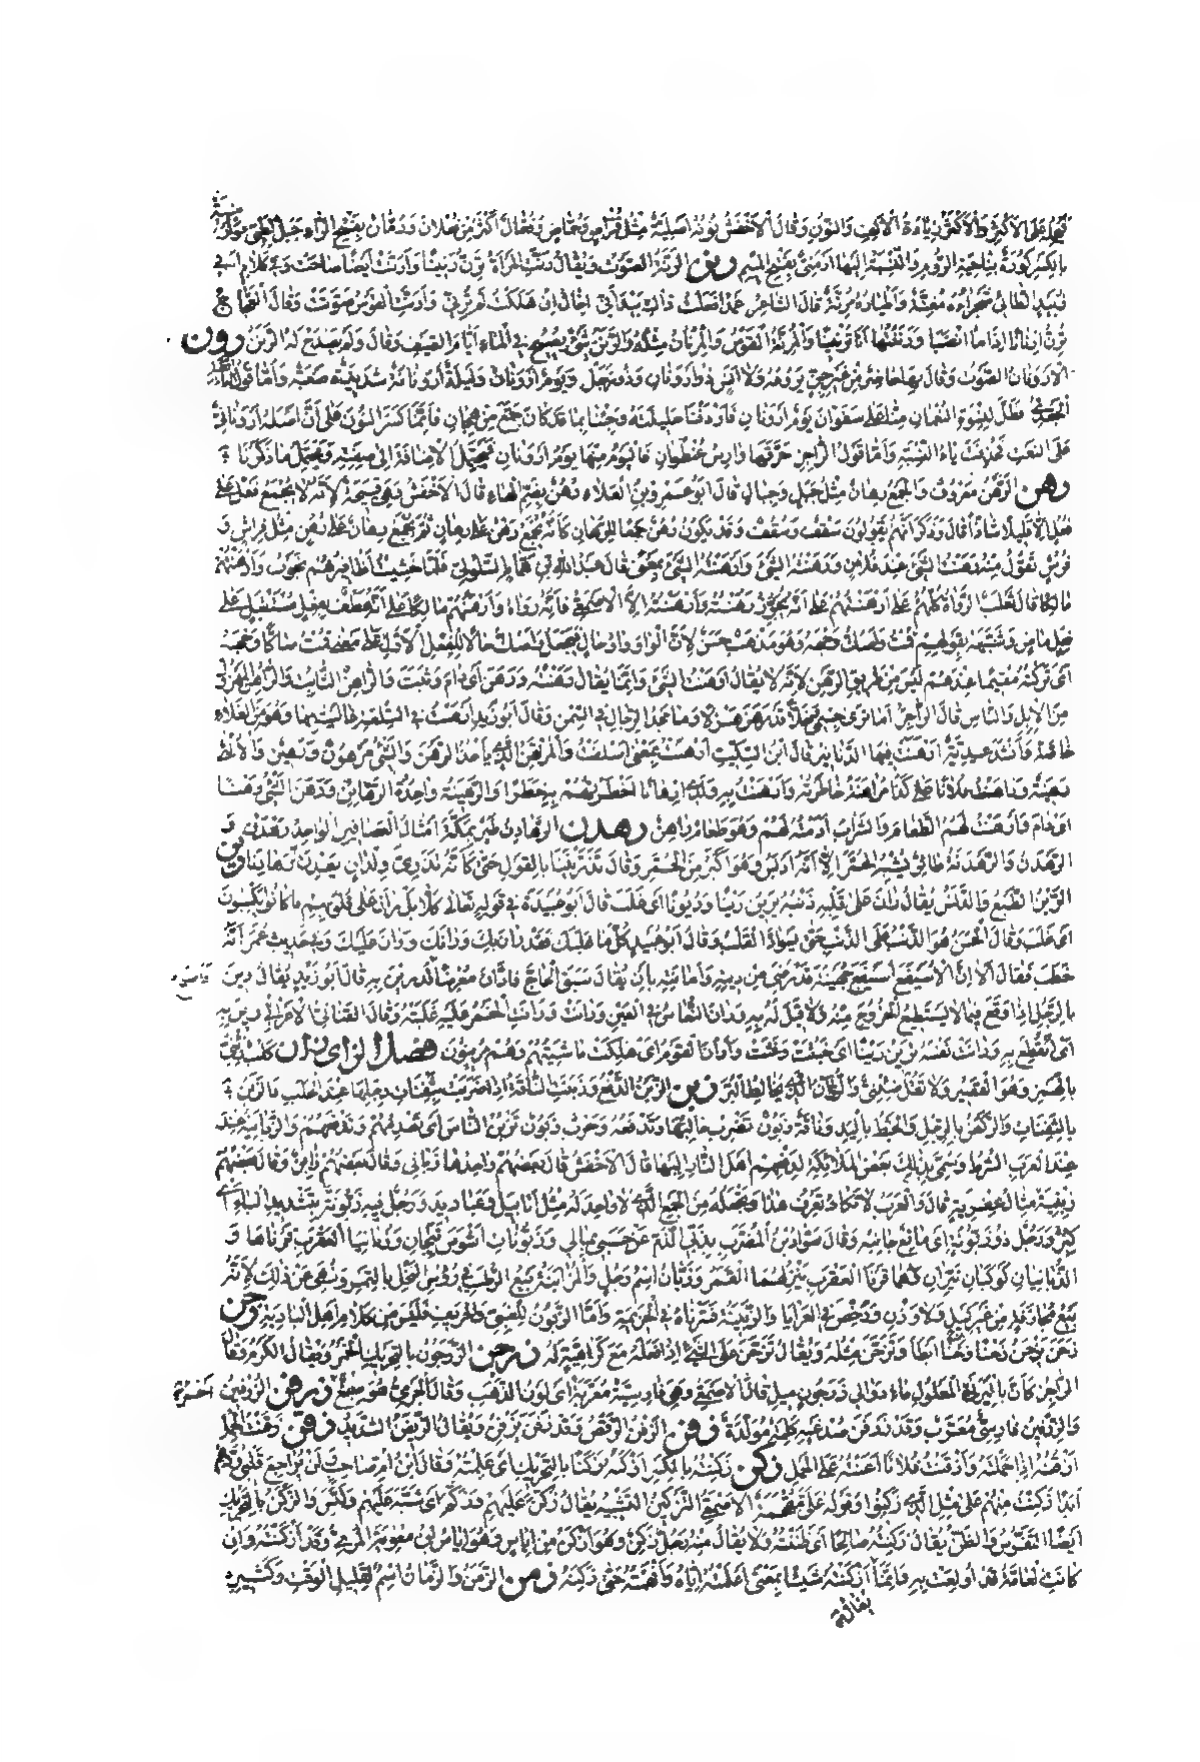 فتحمله على الاكثر والاكثر زيادة الالف والنون وقال الاخفش نونه اصلية مثل قراص وحماض وفعال اكثر من فعلان ورمان بفتح الراء جبل لطيئ وارمينية
بالكسر كورة بناحية الروم والنسبة اليها ارمني بفتح الميم رنن الرنة الصوت ويقال رنت المراة ترن رنينا وارنت ايضا صاحت وفي كلام ابي
زبيد الطائي شجراؤه مغنة واطياره مرنة قال الشاعر عمدا فعلت ذاك بيد اني اخال ان هلكت لم ترني وارنت القوس صوتت وقال العجاج
ترن ارنانا اذا ما انضبا ورننتها انا ترنينا والمرنة القوس والمرنان مثله والرنن شيء يصيح في الماء ايام الصيف وقال ولم يصدح له الرنن رون
الارونان الصوت وقال بها حاضر من غير جن يروعه ولا انس ذو ارونان وذو زجل ويوم ارونان وليلة ارونانة شديدة صعبة واما قول النابغة
الجعدي فظل لنسوة النعمان منا على سفوان يوم ارونان فاردفنا حليلته وجئنا بما قد كان جمع من هجان فانما كسر النون على ان اصله اروناني
على النعت فحذفت ياء النسبة واما قول الراجز حرقها وارس عنظوان فاليوم منها يوم ارونان فيحتمل الاضافة الى صفته ويحتمل ما ذكرنا
رهن الرهن معروف والجمع رهان مثل حبل وحبال قال ابو عمرو بن العلاء رهن بضم الهاء قال الاخفش وهي قبيحة لانه لا يجمع فعل على
فعل الا قليلا شاذا قال وذكر انهم يقولون سقف وسقف وقد يكون رهن جمعا للرهان كانه يجمع رهن على رهان ثم يجمع رهان على رهن مثل فراش و
فرش تقول منه رهنت الشيء عند فلان ورهنته الشيء وارهنته الشيء بمعنى قال عبد الله بن همام السلولي فلما خشيت اظافيرهم نجوت وارهنتهم
مالكا قال ثعلب الرواة كلهم على ارهنتهم على انه يجوز رهنته وارهنته الا الاصمعي فانه رواه وارهنهم مالكا على انه عطف بفعل مستقبل على
فعل ماض وشبهه بقولهم قمت واصك وجهه وهو مذهب حسن لان الواو واو حال فيجعل اصك حالا للفعل الاول على معنى قمت صاكا وجهه
اي تركته مقيما عندهم ليس من طريق الرهن لانه لا يقال ارهنت الشيء وانما يقال رهنته ورهن اي دام وثبت والراهن الثابت والراهن المهزول
من الابل والناس قال الراجز اما ترى جسمي خلا قد رهن هزلا وما مجد الرجال في السمن وقال ابو زيد ارهنت في السلعة غاليت بها وهو من الغلاء
خاصة وانشد عيدية ارهنت فيها الدنانير قال ابن السكيت ارهنت بمعنى اسلفت والمرتهن الذي ياخذ الرهن والشيء مرهون ورهين والانثى
رهينة وراهنت فلانا على كذا مراهنة خاطرته وارهنت به ولدي ارهانا اخطرتهم به خطرا والرهينة واحدة الرهائن ورهن الشيء رهنا
اي دام وارهنت لهم الطعام والشراب ادمته لهم وهو طعام راهن رهدن الرهادن طير بمكة امثال العصافير الواحد رهدن و
الرهدن والرهدنة طائر يشبه الحمر الا انه ادبس وهو اكبر من الحمر وقال تذريننا بالقول حتى كانه تذري ولدان يصدن رهادنا رين
الرين الطبع والدنس يقال ران على قلبه ذنبه يرين رينا وريونا اي غلب قال ابو عبيدة في قوله تعالى كلا بل ران على قلوبهم ما كانوا يكسبون
اي غلب وقال الحسن هو الذنب على الذنب حتى يسواد القلب وقال ابو عبيد كل ما غلبك فقد ران بك ورانك وران عليك وفي حديث عمر انه
خطب فقال الا ان الاسيفع اسيفع جهينة قد رضي من دينه وامانته بان يقال سبق الحاج فادان معرضا فاصبح قد رين به قال ابو زيد يقال رين
بالرجل اذا وقع فيما لا يستطيع الخروج منه ولا قبل له به وران النعاس في العين ورانت ورانت الخمر عليه غلبته وقال القناني الاعرابي رين به
اي انقطع به ورانت نفسه ترين رينا اي خبثت وغثت واران القوم اي هلكت ماشيتهم وهم مرينون فصل الزاي زأن كلب زئني
بالهمز وهو القصير ولا تقل صيني والزوان الذي يخالط البر زبن الزبن الدفع وزبنت الناقة اذا ضربت بثفنات رجليها عند الحلب فالزبن
بالثفنات والركض بالرجل والخبط باليد وناقة زبون تضرب حالبها وتدفعه وحرب زبون تزبن الناس اي تصدمهم وتدفعهم والزبانية عند
عند العرب الشرط وسمي بذلك بعض الملائكة لدفعهم اهل النار اليها قال الاخفش قال بعضهم واحدها زباني وقال بعضهم زابن وقال بعضهم
زبنية مثال عفرية قال والعرب لا تكاد تعرف هذا وتجعله من الجمع الذي لا واحد له مثل ابابيل وعباديد ورجل فيه زبونة بتشديد الباء اي
كبر ورجل ذو زبونة اي مانع جانبه وقال سوار بن المضرب بذبي الذم عن حسبي بمالي وزبونات اشوس تيحان وزبانيا العقرب قرناها و
الزبانيان كوكبان نيران هما قرنا العقرب ينزلهما القمر وزبان اسم رجل والمزابنة بيع الرطب في رؤس النخل بالتمر ونهي عن ذلك لانه
بيع مجازفة من غير كيل ولا وزن ورخص في العرايا والزبينة فترباه في الحريمة واما الزبون للغبي والحريف فليس من كلام اهل البادية زجن
زحن يزحن زحنا ابطا وتزحن مثله ويقال تزحن على الشيء اذا فعله مع كراهية له زرجن الزرجون بالتحريك الخمر ويقال الكرم قال
الراجز كان باليرنا المعلول ماء دوالي زرجون ميل قال الاصمعي وهي فارسية معربة اي لون الذهب وقال الجرمي هو صبغ احمر زرفن الزرفين
والزرفين فارسي معرب وقد زرفن صدغيه كلمة مولدة زفن الزفن الرقص وقد زفن يزفن ويقال الزيفن الشديد زقن زقنت الحمل
ازقنه اذا حملته وازقنت فلانا اعنته على الحمل زكن زكنته بالكسر ازكنه زكنا بالتحريك اي علمته وقال ابن ام صاحب لن يراجع قلبي ودهم
ابدا زكنت منهم على مثل الذي زكنوا وقوله على مقحمة الاصمعي التزكين التشبيه يقال زكن عليهم وزكم اي شبه عليهم ولبس والزكن بالتحريك
ايضا التفرس والظن يقال زكنته صالحا اي ظننته ولا يقال منه رجل زكن وهو ازكن من اياس وهو اياس بن معوية المزني وقد ازكنته وان
كانت العامة قد اولعت به وانما يقال ازكنته شيئا بمعنى اعلمته اياه وافهمته حتى زكنه زمن الزمن والزمان اسم لقليل الوقت وكثيره